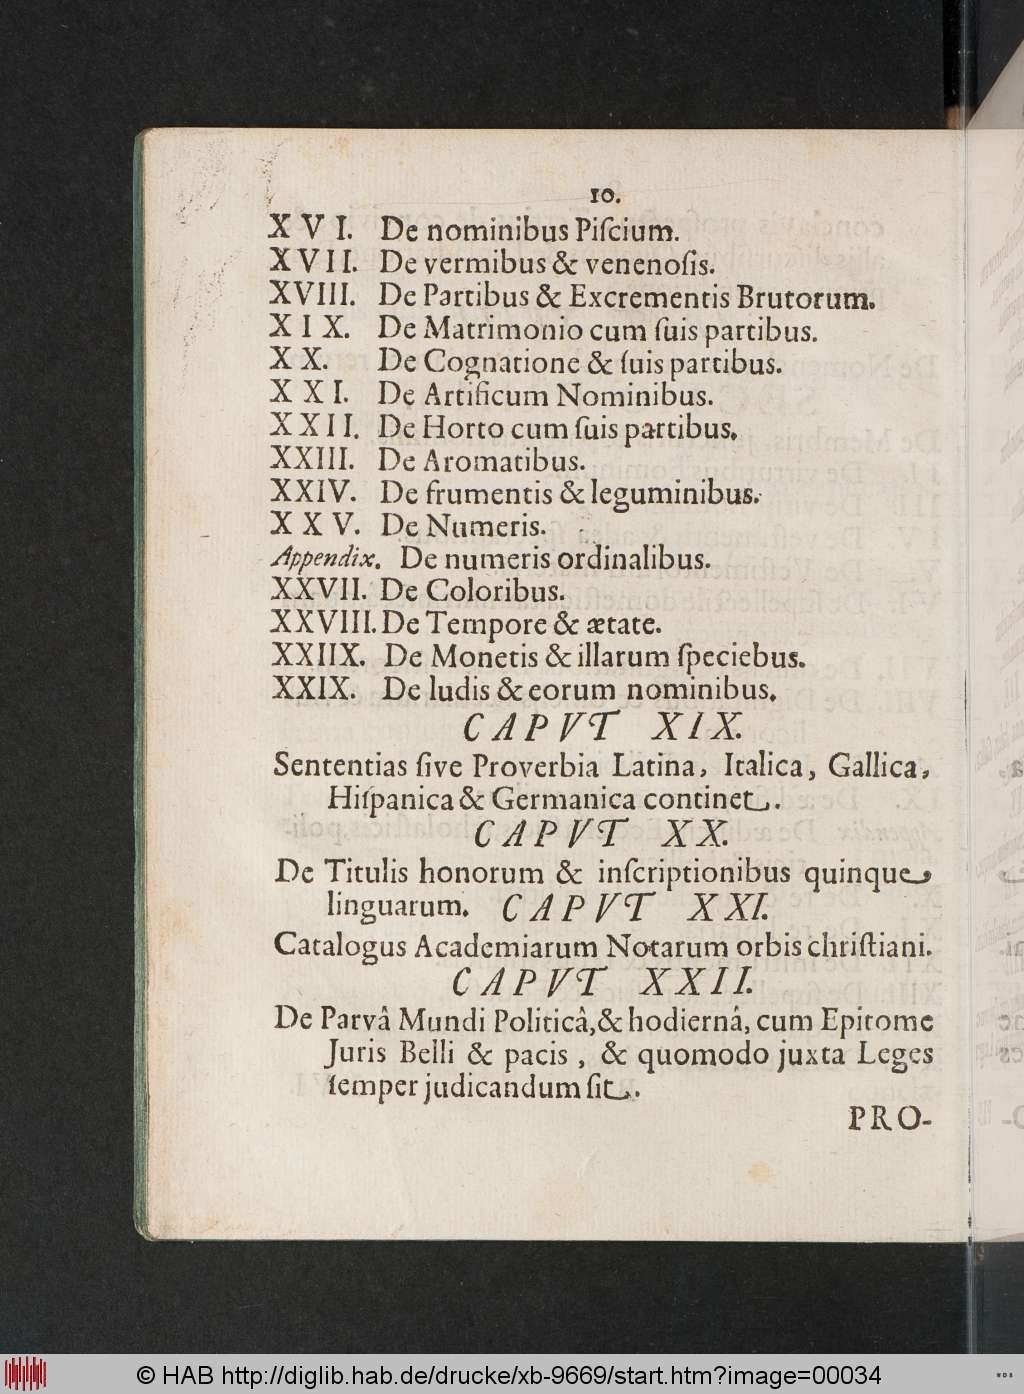 10.
XVI. De nominibus Piſcium.
XVII. De vermibus & venenoſis.
XVIII. De Partibus & Excrementis Brutorum.
XIX. De Matrimonio cum ſuis partibus.
XX. De Cognatione & ſuis partibus.
XXI. De Artificum Nominibus.
XXII. De Horto cum ſuis partibus.
XXIII. De Aromatibus.
XXIV. De frumentis & leguminibus.
XXV. De Numeris.
Appendix. De numeris ordinalibus.
XXVII. De Coloribus.
XXVIII. De Tempore & ætate.
XXIIX. De Monetis & illarum ſpeciebus.
XXIX. De ludis & eorum nominibus.
CAPVT XIX.
Sententias ſive Proverbia Latina, Italica, Gallica,
Hiſpanica & Germanica continet.
CAPVT XX.
De Titulis honorum & inſcriptionibus quinque
linguarum. CAPVT XXI.
Catalogus Academiarum Notarum orbis chriſtiani.
CAPVT XXII.
De Parvâ Mundi Politicâ, & hodiernâ, cum Epitome
Juris Belli & pacis, & quomodo juxta Leges
ſemper judicandum ſit.
PRO-
© HAB http://diglib.hab.de/drucke/xb-9669/start.htm?image=00034